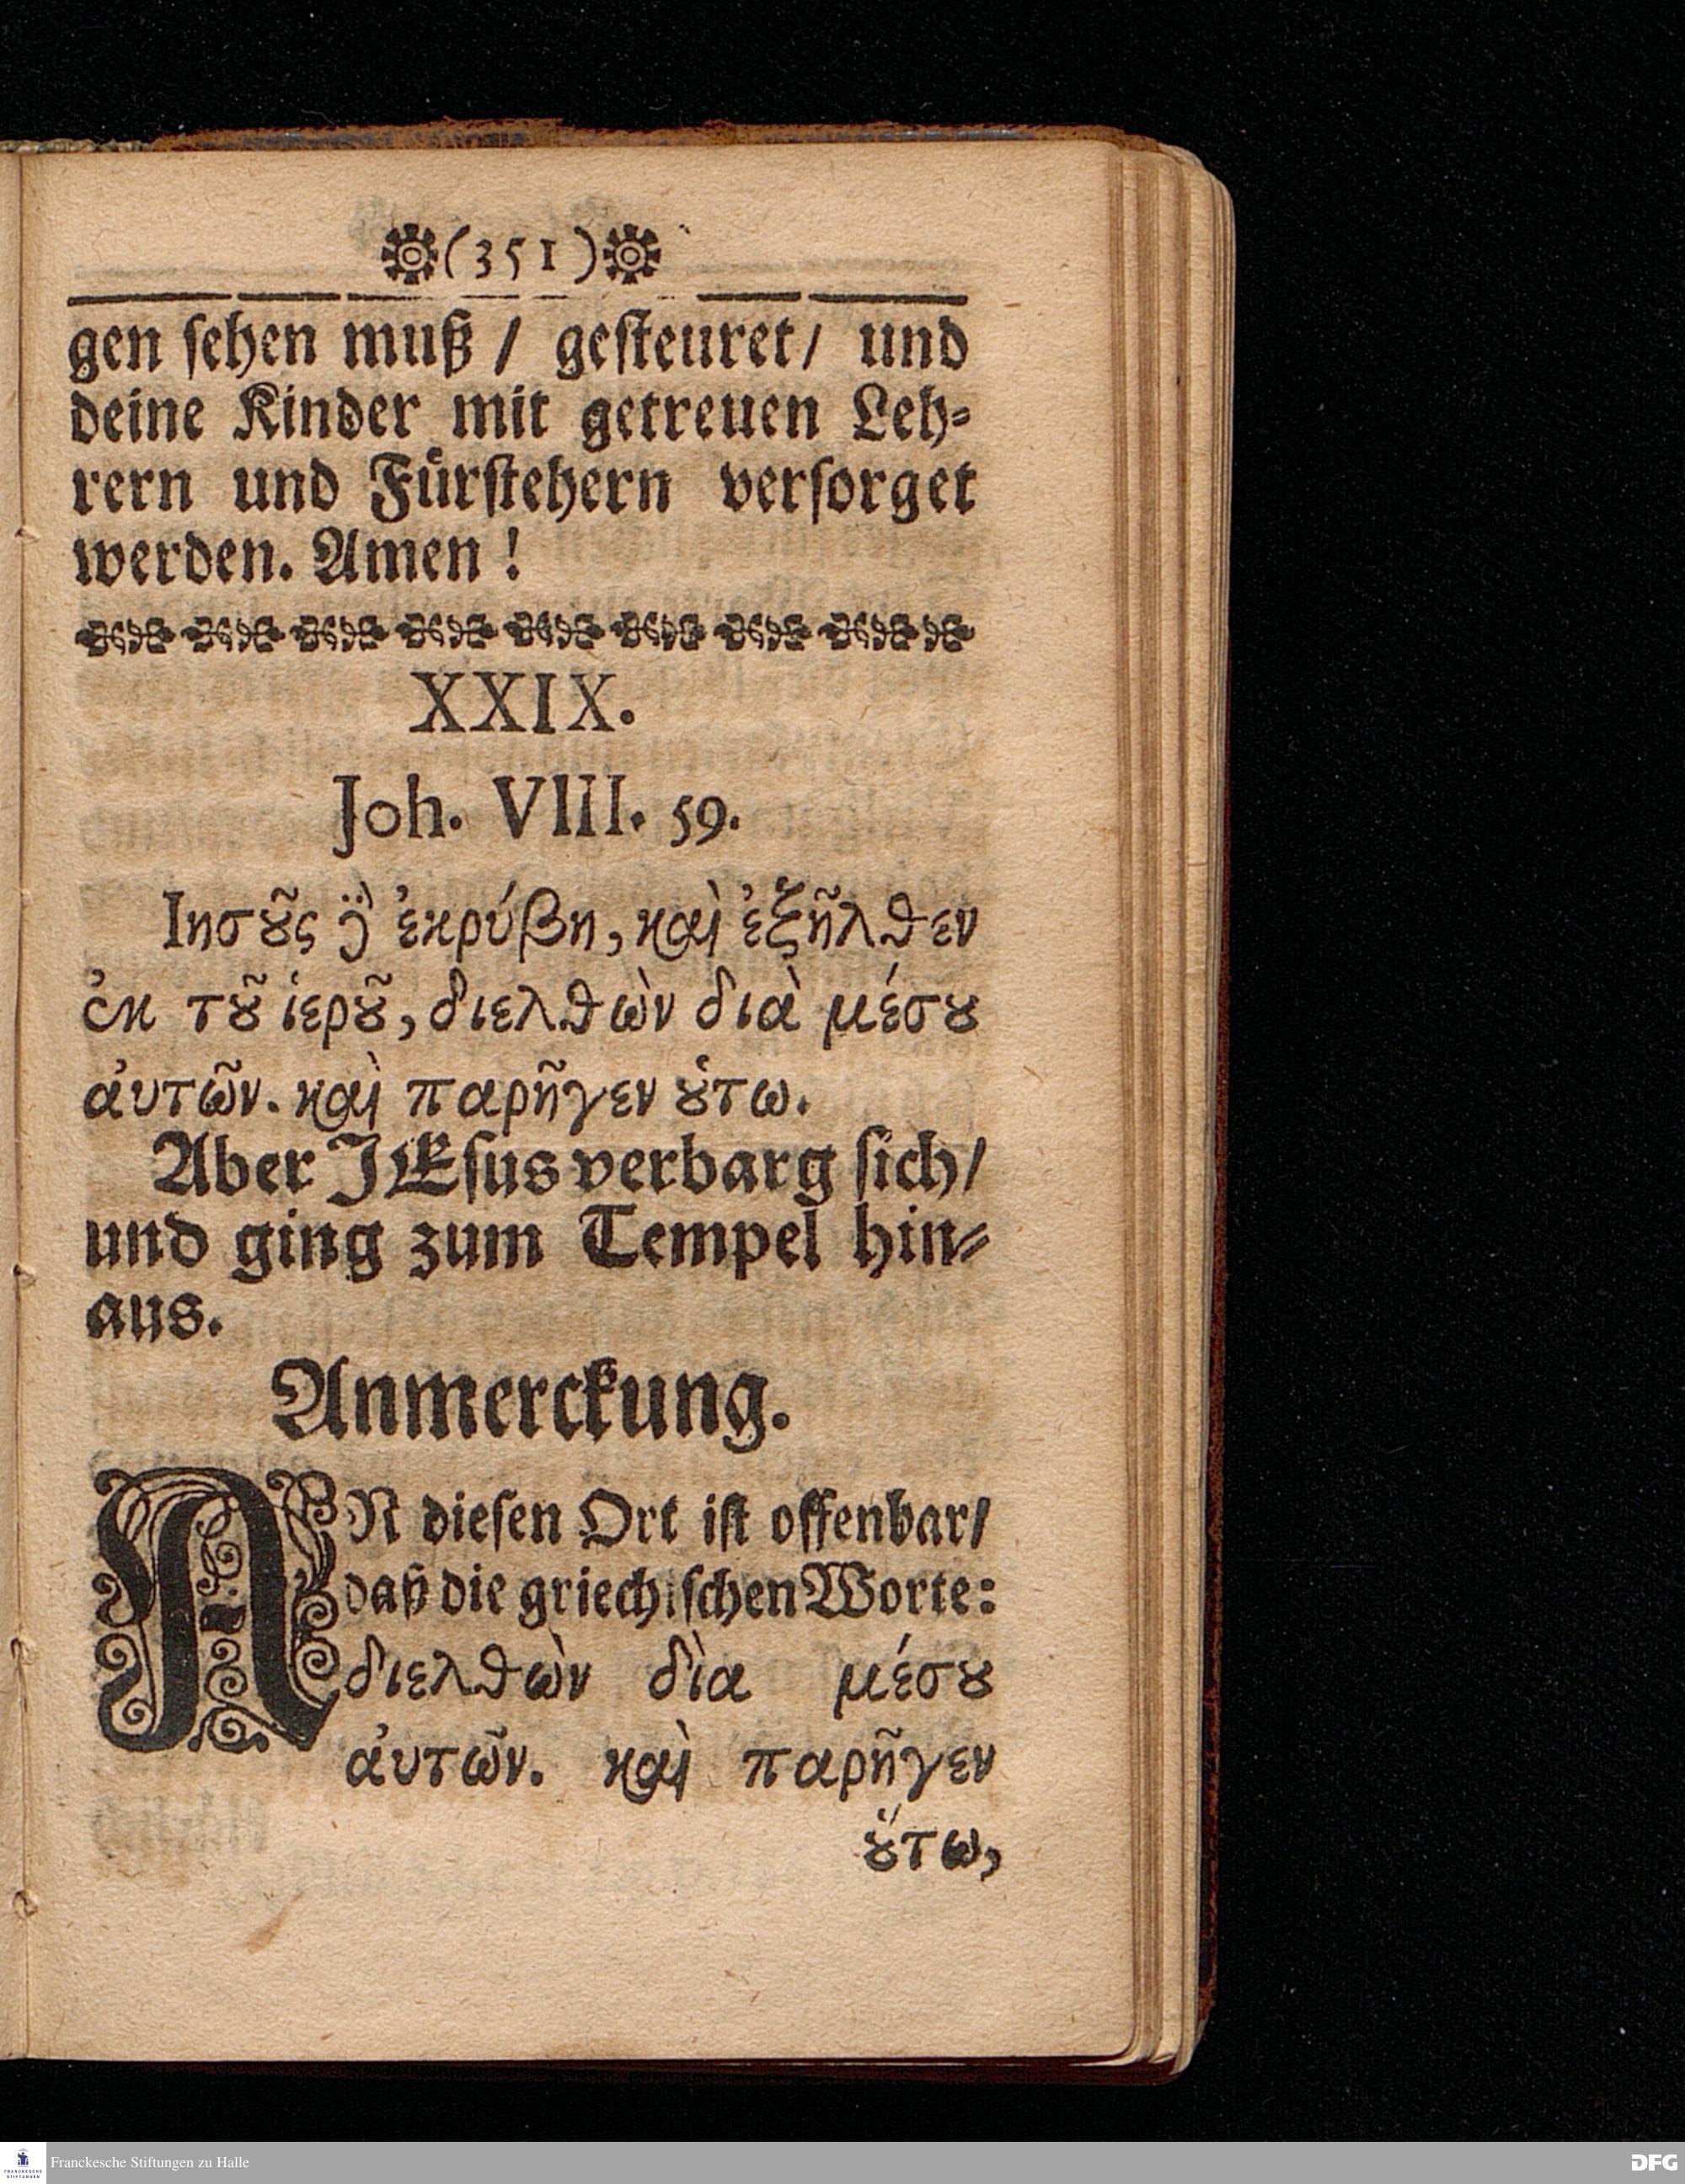 (351)
gen ſehen muß / geſteuret / und
deine Kinder mit getreuen Leh⸗
rern und Fürſtehern verſorget
werden. Amen !
XXIX.
Joh. VIII. 59.
Ιησȣ͂ς ϳ̈̀ ἐκρύβη, καὶ ἐξῆλθεν
ἐκ τȣ͂ ἱερȣ͂, διελθὼν διὰ μέσȣ
ἀυτῶν. καὶ παρῆγεν ȣ̔́τω.
Aber JEſus verbarg ſich /
und ging zum Tempel hin⸗
aus.
Anmerckung.
AN dieſen Ort iſt offenbar /
daß die griechiſchen Worte:
διελθὼν δὶα μέσȣ
ἀυτῶν. καὶ παρῆγεν
ȣ̔́τω,
Franckesche Stiftungen zu Halle
FRANCKESCHE
STIFTUNGEN
DFG